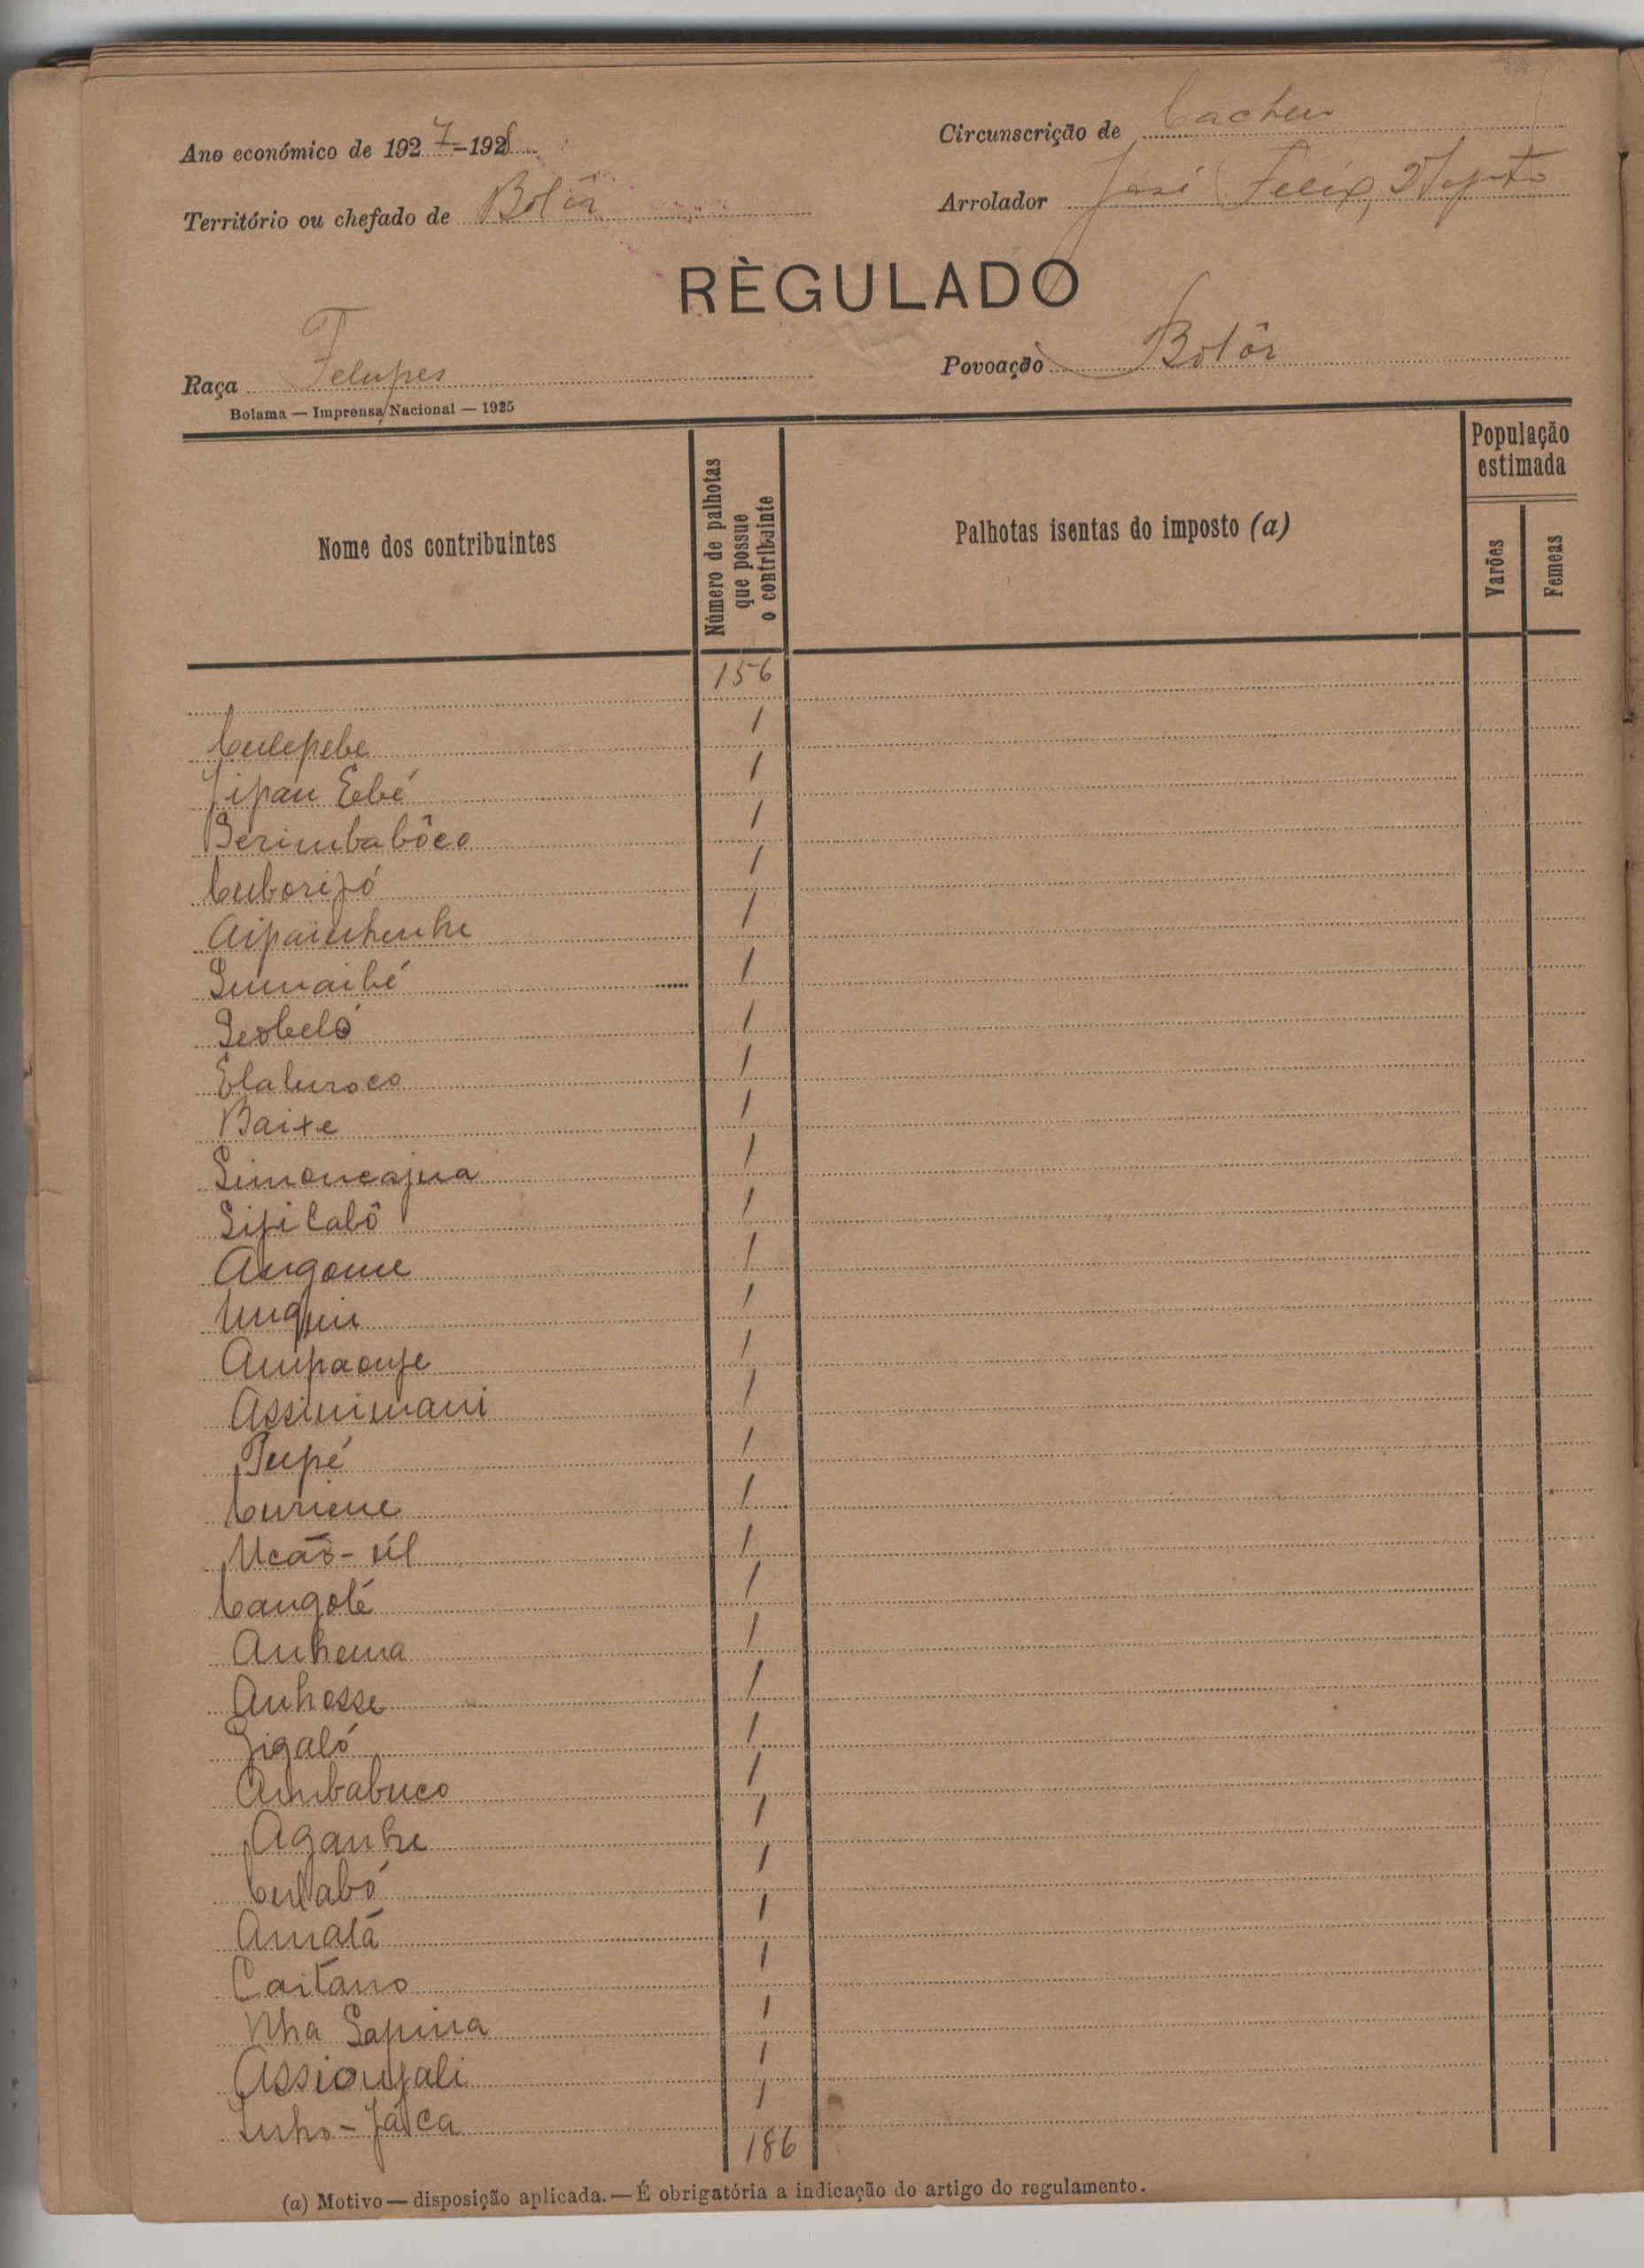 Ano económico de 1927-1928
Circunscrição de Cacheu
Território ou chefado de Bolôr
Arrolador José Felix,
RÈGULADO
Raça Felupes
Povoação Bolôr
Bolama — Imprensa Nacional — 1925
Nome dos contribuintes
Número de palhotas que possue o contribuinte
Palhotas isentas do imposto (a)
População estimada
Varões
Femeas
156
Culepebe 1
Jipau Ebé 1
Berimbabôco 1
Cuborijó 1
Aipainhenhe 1
Sumaibé 1
Seobeló 1
Elaluroco 1
Baixe 1
Simoneajua 1
Siji Cabô 1
Angome 1
Unquin 1
Ampaonje 1
Assinimani 1
Pupé 1
Curiene 1
Ucão-úl 1
Cangolé 1
Anhema 1
Anhosse 1
Jigaló 1
Ambabuco 1
Aganhe 1
Culabó 1
Amatá 1
Caitano 1
Nha Sapina 1
Assionjali 1
Lunho-Jáca 1
186
(a) Motivo — disposição aplicada. — É obrigatória a indicação do artigo do regulamento.